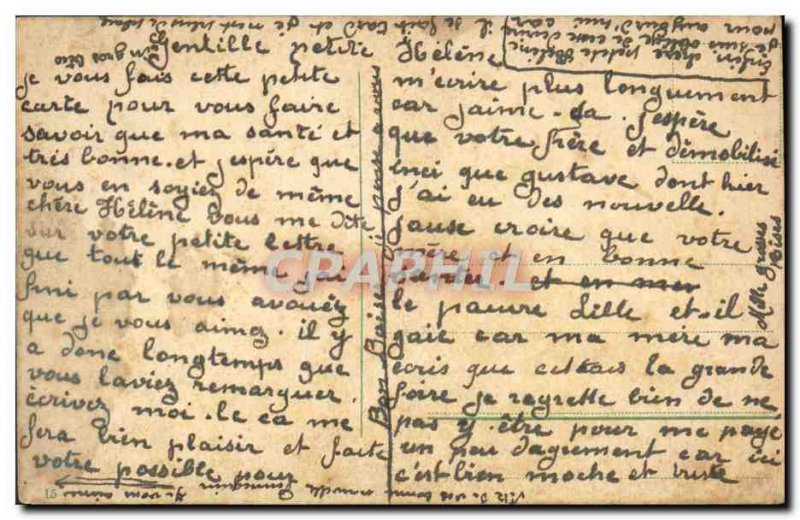 Gentille petite Hélène
je vous fais cette petite
carte pour vous faire
savoir que ma santé et
très bonne. et j'espère que
vous en soyiez de même
chère Hélène vous me dite
sur votre petite lettre
que tout le même jai
fini par vous avouéz
que je vous aimez. il y
a donc longtemps que
vous laviez remarquer.
écrivez moi. le ca me
fera bien plaisir et faite
votre possible pour
m'écrire plus longuement
car jaime. ca. j'espère
que votre frère et démobilisé
inci que gustave dont hier
j'ai eu des nouvelle.
jause croire que votre
mère et en bonne
santer. et en mer
le pauvre Lille et. il
gaie car ma mère ma
écris que cétais la grande
foire je regrette bien de ne
pas y être pour me payé
un peu dagrement car ici
c'est bien moche et triste
Enfin chère petite Hélène
je suis obligé de
pour aujourd'hui car
il se fait tard et je nest plus de place
Bon Baiser
Mille graus
Bises
un gros
je vous aime
de vos bonne nouvelle
CPAPHIL
15